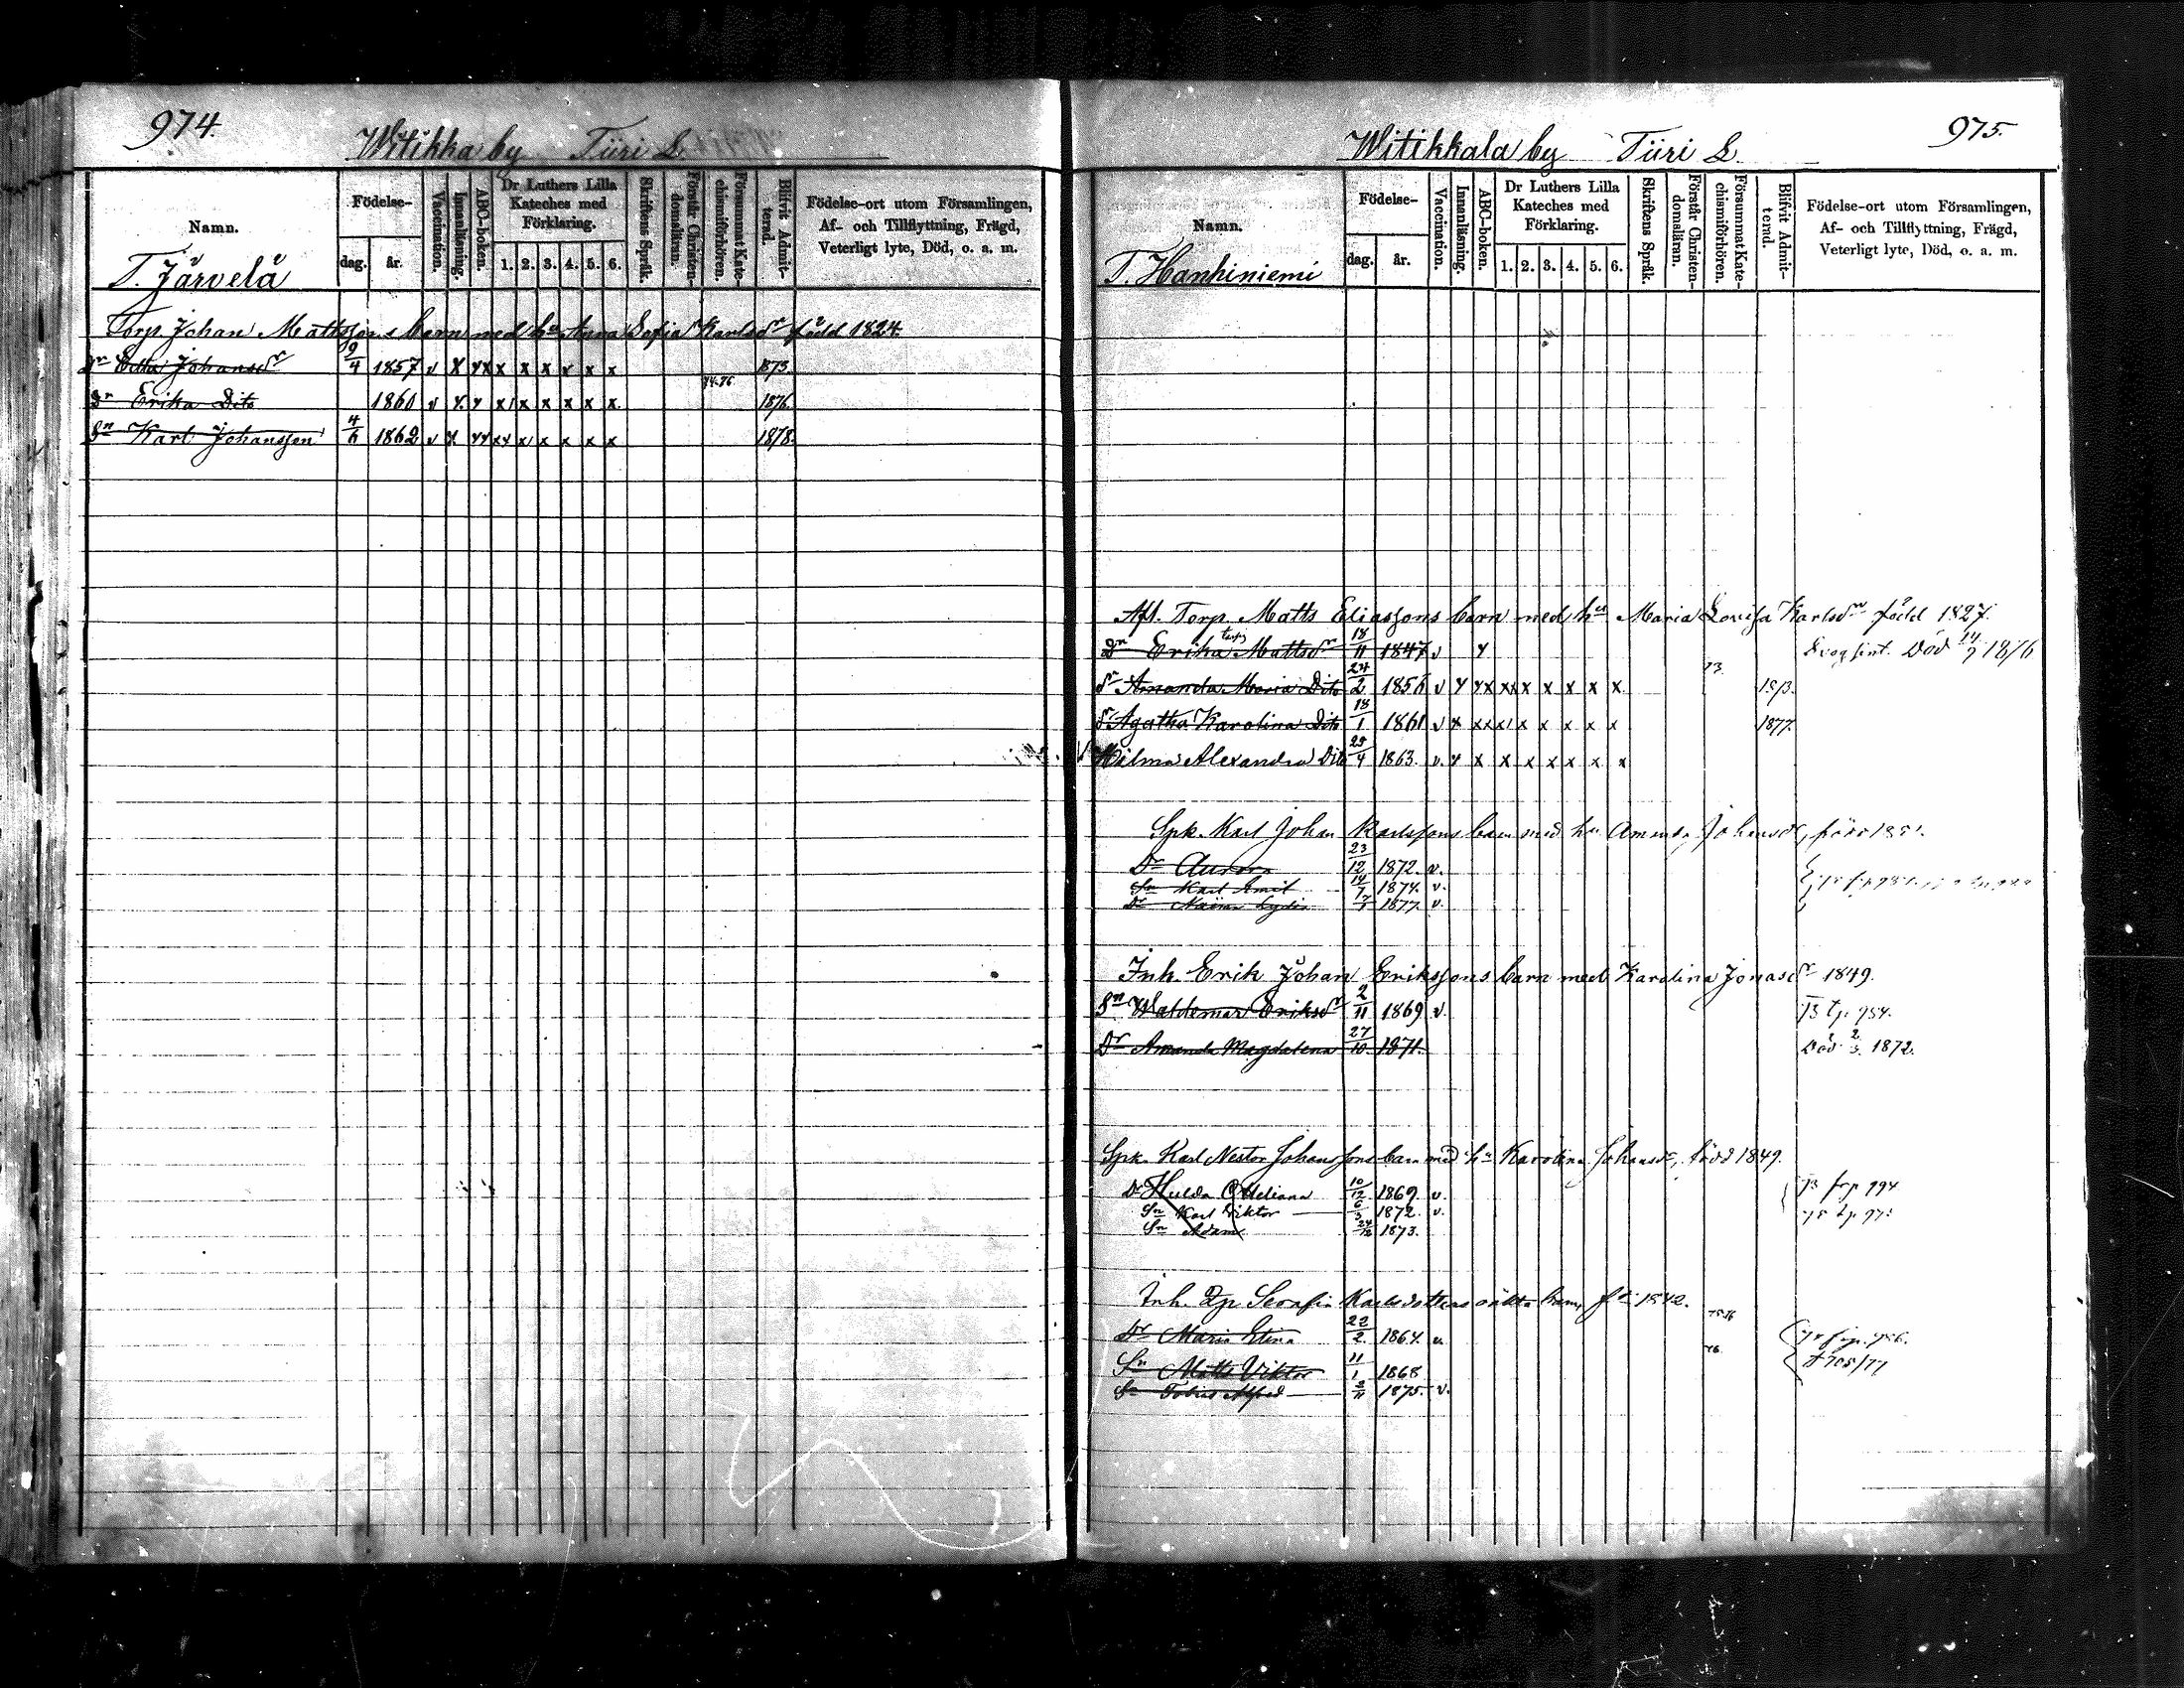 974.
Witikka by Tiiri L.
Namn.
Födelse-
dag.
år.
Vaccination.
Innanläsning.
ABC-boken.
Dr Luthers Lilla Kateches med Förklaring.
1. 2. 3. 4. 5. 6.
Skriftens Språk.
Förstår Christen-domsläran.
Försummat Kate-chismiförhören.
Blifvit Admit-terad.
Födelse-ort utom Församlingen,
Af- och Tillflyttning, Frägd,
Veterligt lyte, Död, o. a. m.
T. Järvelä
Torp. Johan Mattssons barn med hu Anna Sofia Karlsdr född 1824.
Dr Edla Johansdr 9/4 1857 v x xx x x x x x x 1873.
Dr Erika Dito 1860 v x x x x x x x x 74-76 1876.
Sn Karl Johansson 4/6 1862 v x xx xx x x x x x 1878.
975.
Witikkala by Tiiri L.
Namn.
Födelse-
dag.
år.
Vaccination.
Innanläsning.
ABC-boken.
Dr Luthers Lilla Kateches med Förklaring.
1. 2. 3. 4. 5. 6.
Skriftens Språk.
Förstår Christen-domsläran.
Försummat Kate-chismiförhören.
Blifvit Admit-terad.
Födelse-ort utom Församlingen,
Af- och Tillflyttning, Frägd,
Veterligt lyte, Död, o. a. m.
T. Hanhiniemi
Afl. Torp. Matts Eliassons barn med hu Maria Lovisa Karlsdr född 1827.
Dr Erika Mattsdr 18/11 1847 v x Död 14/9 1876
Dr Amanda Maria Dito 24/2 1856 v x xx xxx x x x x x 73. 1873.
Dr Agatha Karolina Dito 18/1 1861 v x xxx x x x x x x 1877.
Wilma Alexandra Dito 25/4 1863. v. x x x x x x x x
Spk. Karl Johan Karlssons barn med hu Johansdr, född
Dr Aurora 23/12 1872. v.
Sn Karl Emil 14/7 1874. v.
Dr Naima Lydia 1877. v.
Inh. Erik Johan Erikssons barn med Karolina Jonasdr 1849.
Sn Waldemar Eriksdr 2/11 1869 v. 73 tp. 954.
Dr Amanda Magdalena 27/10 1871. Död 2/3. 1872.
Spk. Karl Nestor Johanssons barn med hu Karolina Johansdr, född 1849.
Dr Hulda Otteliana 10/12 1869 v. 73 frp 994
Sn Karl Viktor 6/3 1872. v.
Sn Adam 24/12 1873.
Inh. Qp Serafia Karlsdotters oäkta barn, f. 1842.
Dr Maria Stina 22/2 1864. v.
Sn Matts Viktor 11/1 1868 76.
Sn Tobias Alfred 1875. v.